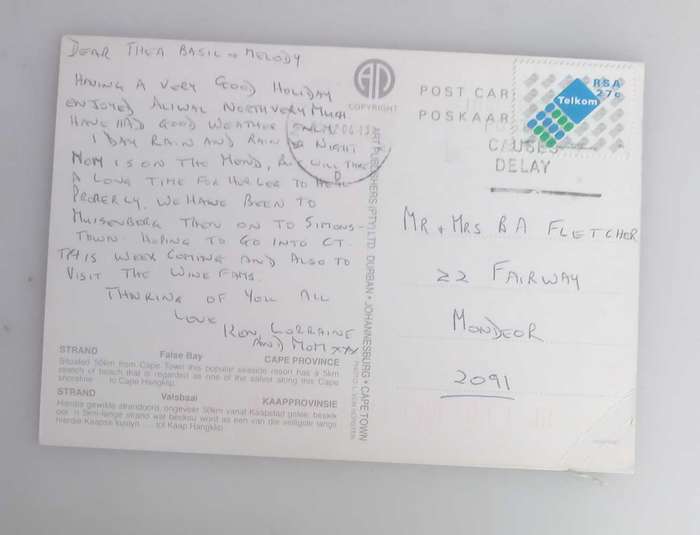 DEAR THEA BASIL + MELODY
HAVING A VERY GOOD HOLIDAY
ENJOYED ALIWAL NORTH VERY MUCH
HAVE HAD GOOD WEATHER ONLY
1 DAY RAIN AND RAIN @ NIGHT
MOM IS ON THE MEND, BUT WILL TAKE
A LONG TIME FOR HER LEG TO HEAL
PROPERLY. WE HAVE BEEN TO
MUISENBERG THEN ON TO SIMONS-
TOWN. HOPING TO GO INTO CT.
THIS WEEK COMING AND ALSO TO
VISIT THE WINE FAMS.
THINKING OF YOU ALL
LOVE
KEN, LORRAINE
AND MOM XXX
STRAND False Bay CAPE PROVINCE
Situated 50km from Cape Town this popular seaside resort has a 5km
stretch of beach that is regarded as one of the safest along this Cape
shoreline to Cape Hangklip.
STRAND Valsbaai KAAPPROVINSIE
Hierdie gewilde strandoord, ongeveer 50km vanaf Kaapstad geleë, beskik
oor 'n 5km-lange strand wat beskou word as een van die veiligste langs
hierdie Kaapse kuslyn ... tot Kaap Hangklip.
COPYRIGHT
ART PUBLISHERS (PTY) LTD DURBAN • JOHANNESBURG • CAPE TOWN
POST CAR
POSKAAR
RSA
27c
Telkom
CAUSES
DELAY
MR + MRS B A FLETCHER
22 FAIRWAY
MONDEOR
2091